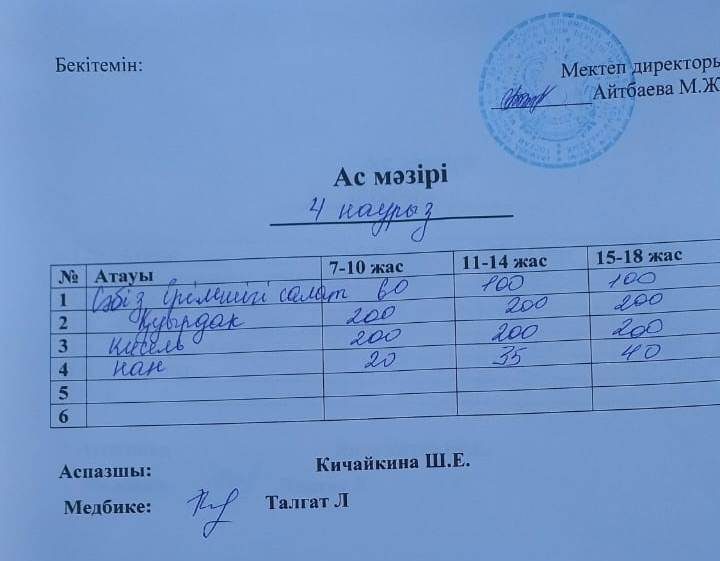 Бекітемін:
Мектеп директоры
Айтбаева М.Ж
Ас мәзірі
4 наурыз
№ Атауы 7-10 жас 11-14 жас 15-18 жас
1 Сәбіз ірімшігі салат 60 100 100
2 Қуырдак 200 200 200
3 кисель 200 200 200
4 нан 20 35 40
5
6
Аспазшы: Кичайкина Ш.Е.
Медбике: Талгат Л